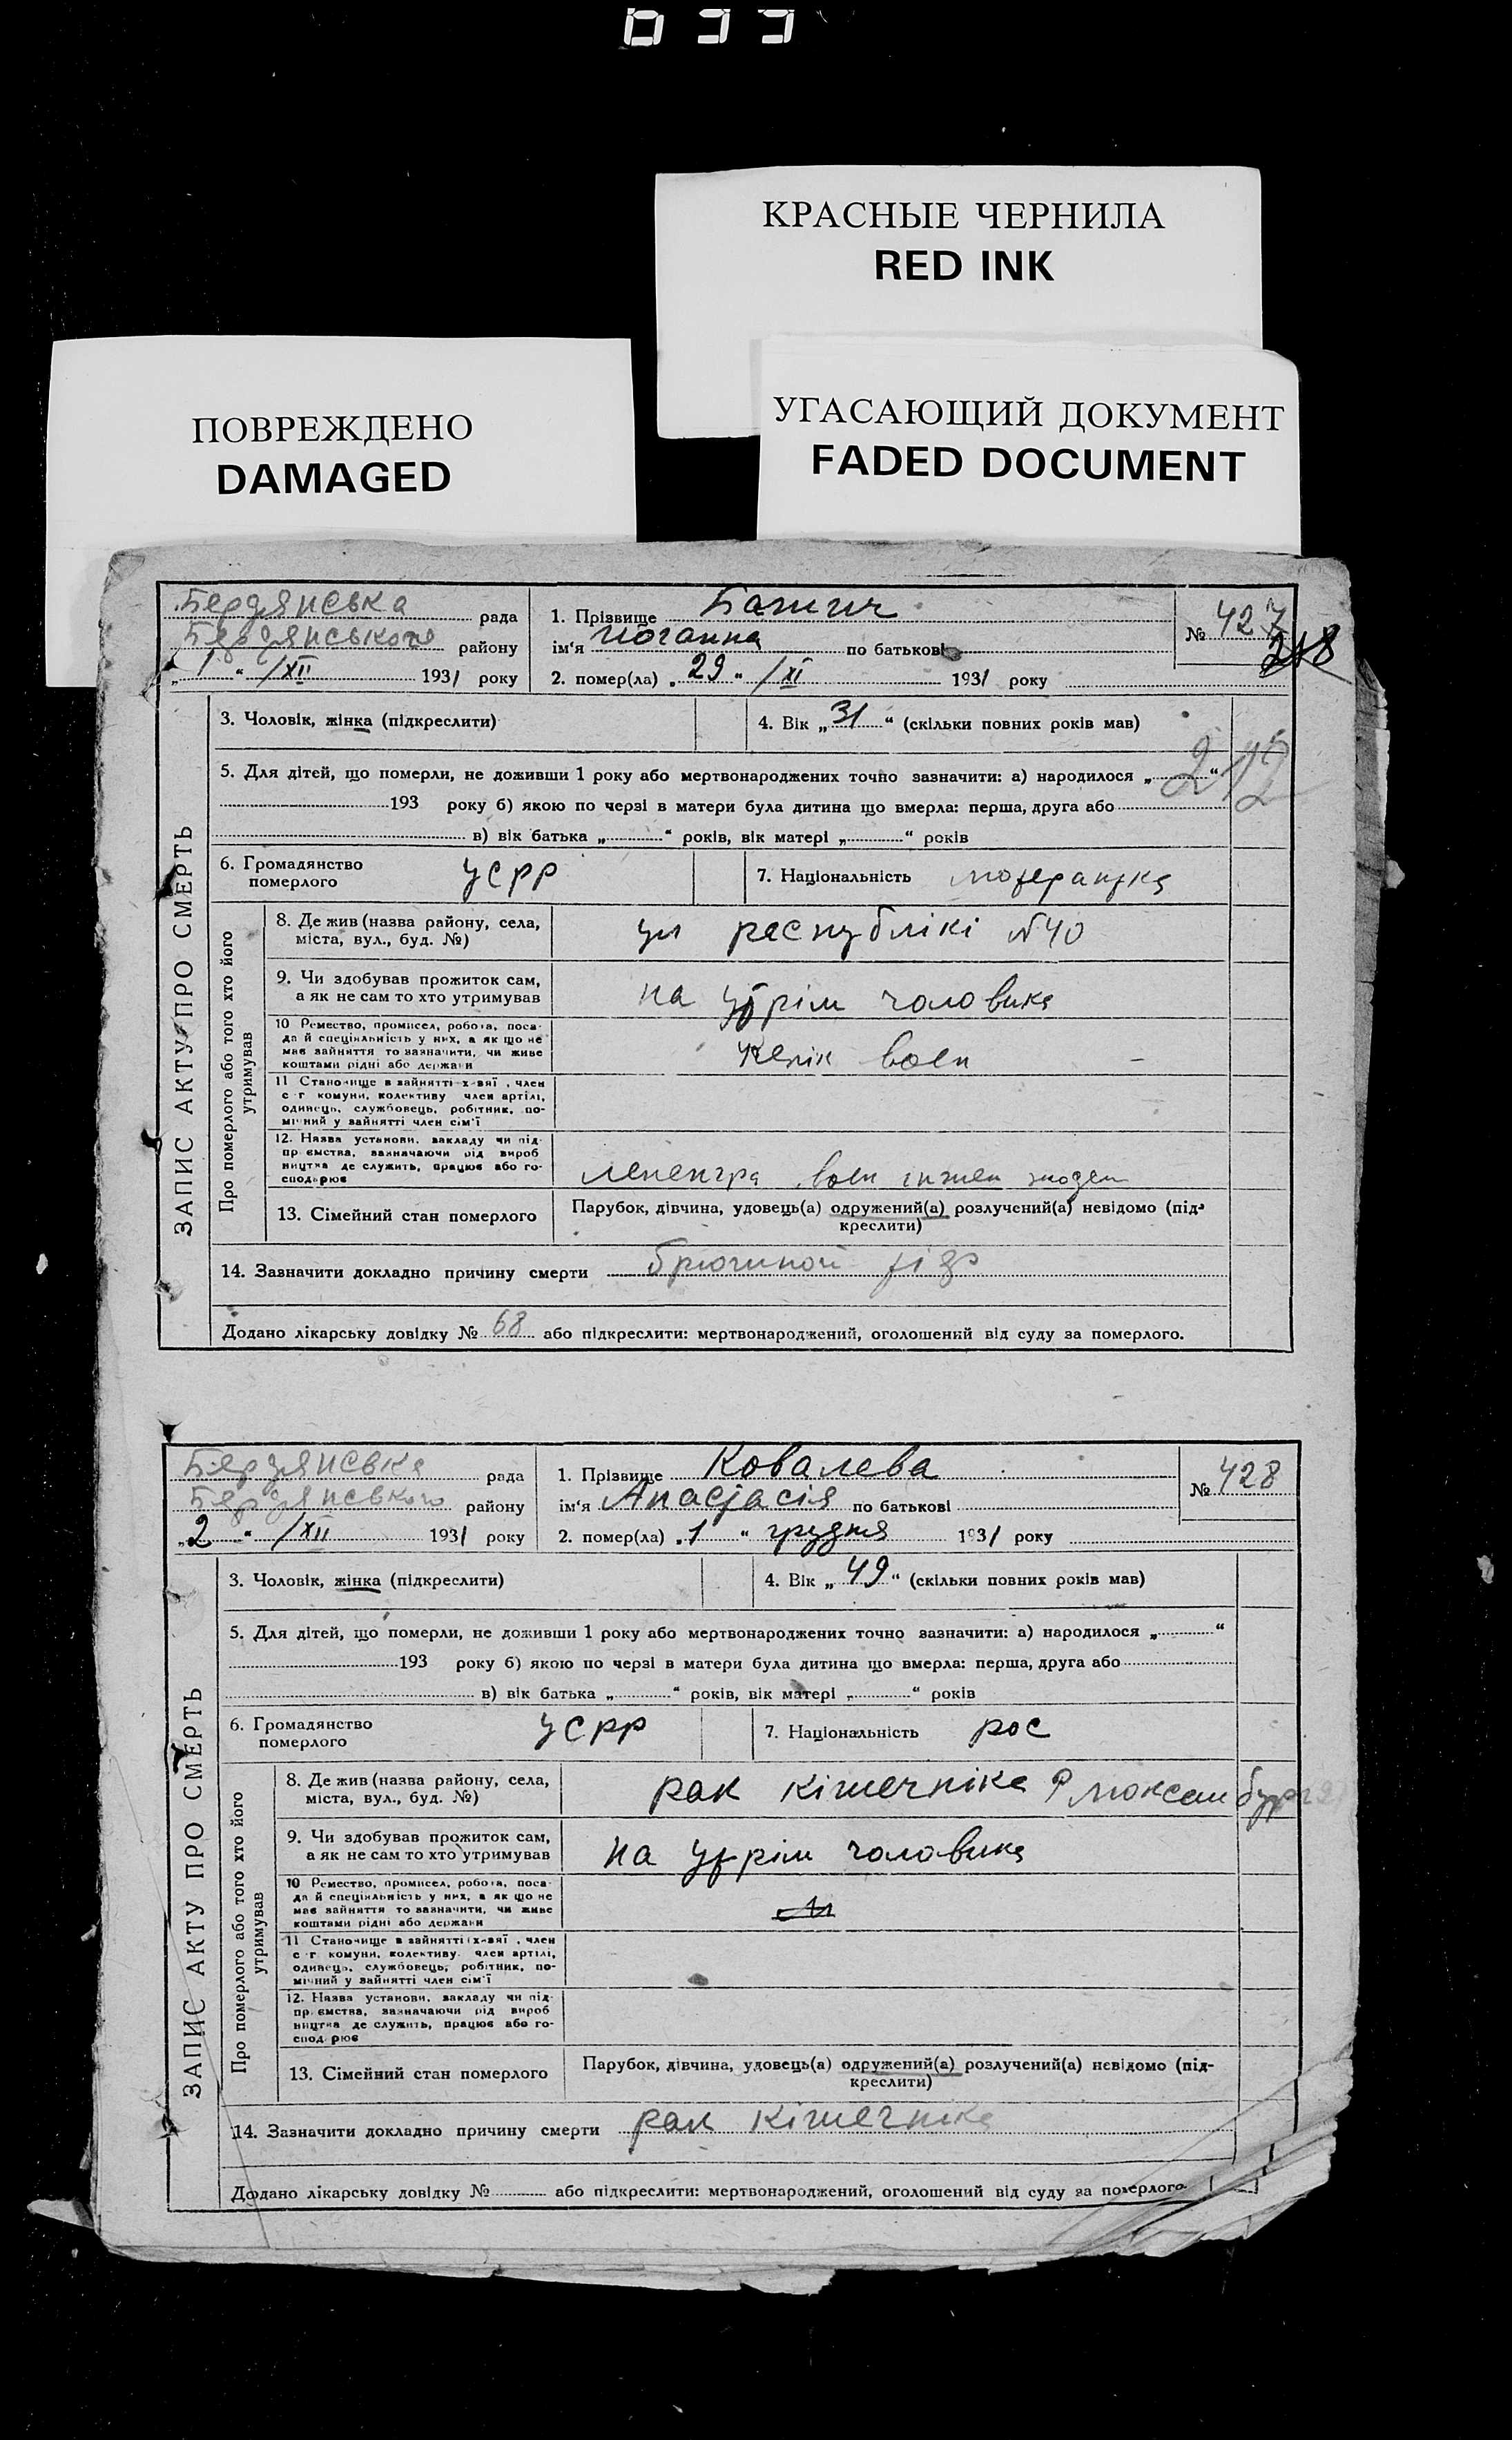 КРАСНЫЕ ЧЕРНИЛА
RED INK
ПОВРЕЖДЕНО
DAMAGED
УГАСАЮЩИЙ ДОКУМЕНТ
FADED DOCUMENT
Бердянська рада
Бердянського району
„ 1 “ /XII 1931 року
1. Прізвище
ім'я Иоганна по батькові
2. помер(ла) „ 29 “ /XI 1931 року
№ 427
218
ЗАПИС АКТУ ПРО СМЕРТЬ
3. Чоловік, жінка (підкреслити)
4. Вік „ 31 “ (скільки повних років мав)
5. Для дітей, що померли, не доживши 1 року або мертвонароджених точно зазначити: а) народилося „ “
193 року б) якою по черзі в матери була дитина що вмерла: перша, друга або
в) вік батька „ “ років, вік матері „ “ років
6. Громадянство
померлого
УСРР
7. Національність
Про померлого або того хто його
утримував
8. Де жив (назва району, села,
міста, вул., буд. №)
ул республікі №40
9. Чи здобував прожиток сам,
а як не сам то хто утримував
на утрім чоловика
10 Ремество, промисел, робота, поса-
да й спеціяльність у них, а як що не
має зайняття то зазначити, чи живе
коштами рідні або держави
11 Становище в зайнятті х-вяї, член
с г комуни, колективу член артілі,
одинець, службовець, робітник, по-
мічний у зайнятті член сім'ї
12. Назва установи, закладу чи під-
приємства, зазначаючи рід вироб
ництва де служить, працює або го-
сподарює
13. Сімейний стан померлого
Парубок, дівчина, удовець(а) одружений(а) розлучений(а) невідомо (під-
креслити)
14. Зазначити докладно причину смерти
Додано лікарську довідку № 68 або підкреслити: мертвонароджений, оголошений від суду за померлого.
Бердянська рада
Бердянського району
„ 2 “ /XII 1931 року
1. Прізвище Ковалева
ім'я Анастасія по батькові
2. помер(ла) „ 1 “ грудня 1931 року
№ 428
ЗАПИС АКТУ ПРО СМЕРТЬ
3. Чоловік, жінка (підкреслити)
4. Вік „ 49 “ (скільки повних років мав)
5. Для дітей, що померли, не доживши 1 року або мертвонароджених точно зазначити: а) народилося „ “
193 року б) якою по черзі в матери була дитина що вмерла: перша, друга або
в) вік батька „ “ років, вік матері „ “ років
6. Громадянство
померлого
УСРР
7. Національність рос
Про померлого або того хто його
утримував
8. Де жив (назва району, села,
міста, вул., буд. №)
рак кішечніка Р
9. Чи здобував прожиток сам,
а як не сам то хто утримував
на утрім чоловика
10 Ремество, промисел, робота, поса-
да й спеціяльність у них, а як що не
має зайняття то зазначити, чи живе
коштами рідні або держави
11 Становище в зайнятті х-вяї, член
с г комуни, колективу член артілі,
одинець, службовець, робітник, по-
мічний у зайнятті член сім'ї
12. Назва установи, закладу чи під-
приємства, зазначаючи рід вироб
ництва де служить, працює або го-
сподарює
13. Сімейний стан померлого
Парубок, дівчина, удовець(а) одружений(а) розлучений(а) невідомо (під-
креслити)
14. Зазначити докладно причину смерти рак кішечніка
Додано лікарську довідку № або підкреслити: мертвонароджений, оголошений від суду за померлого.